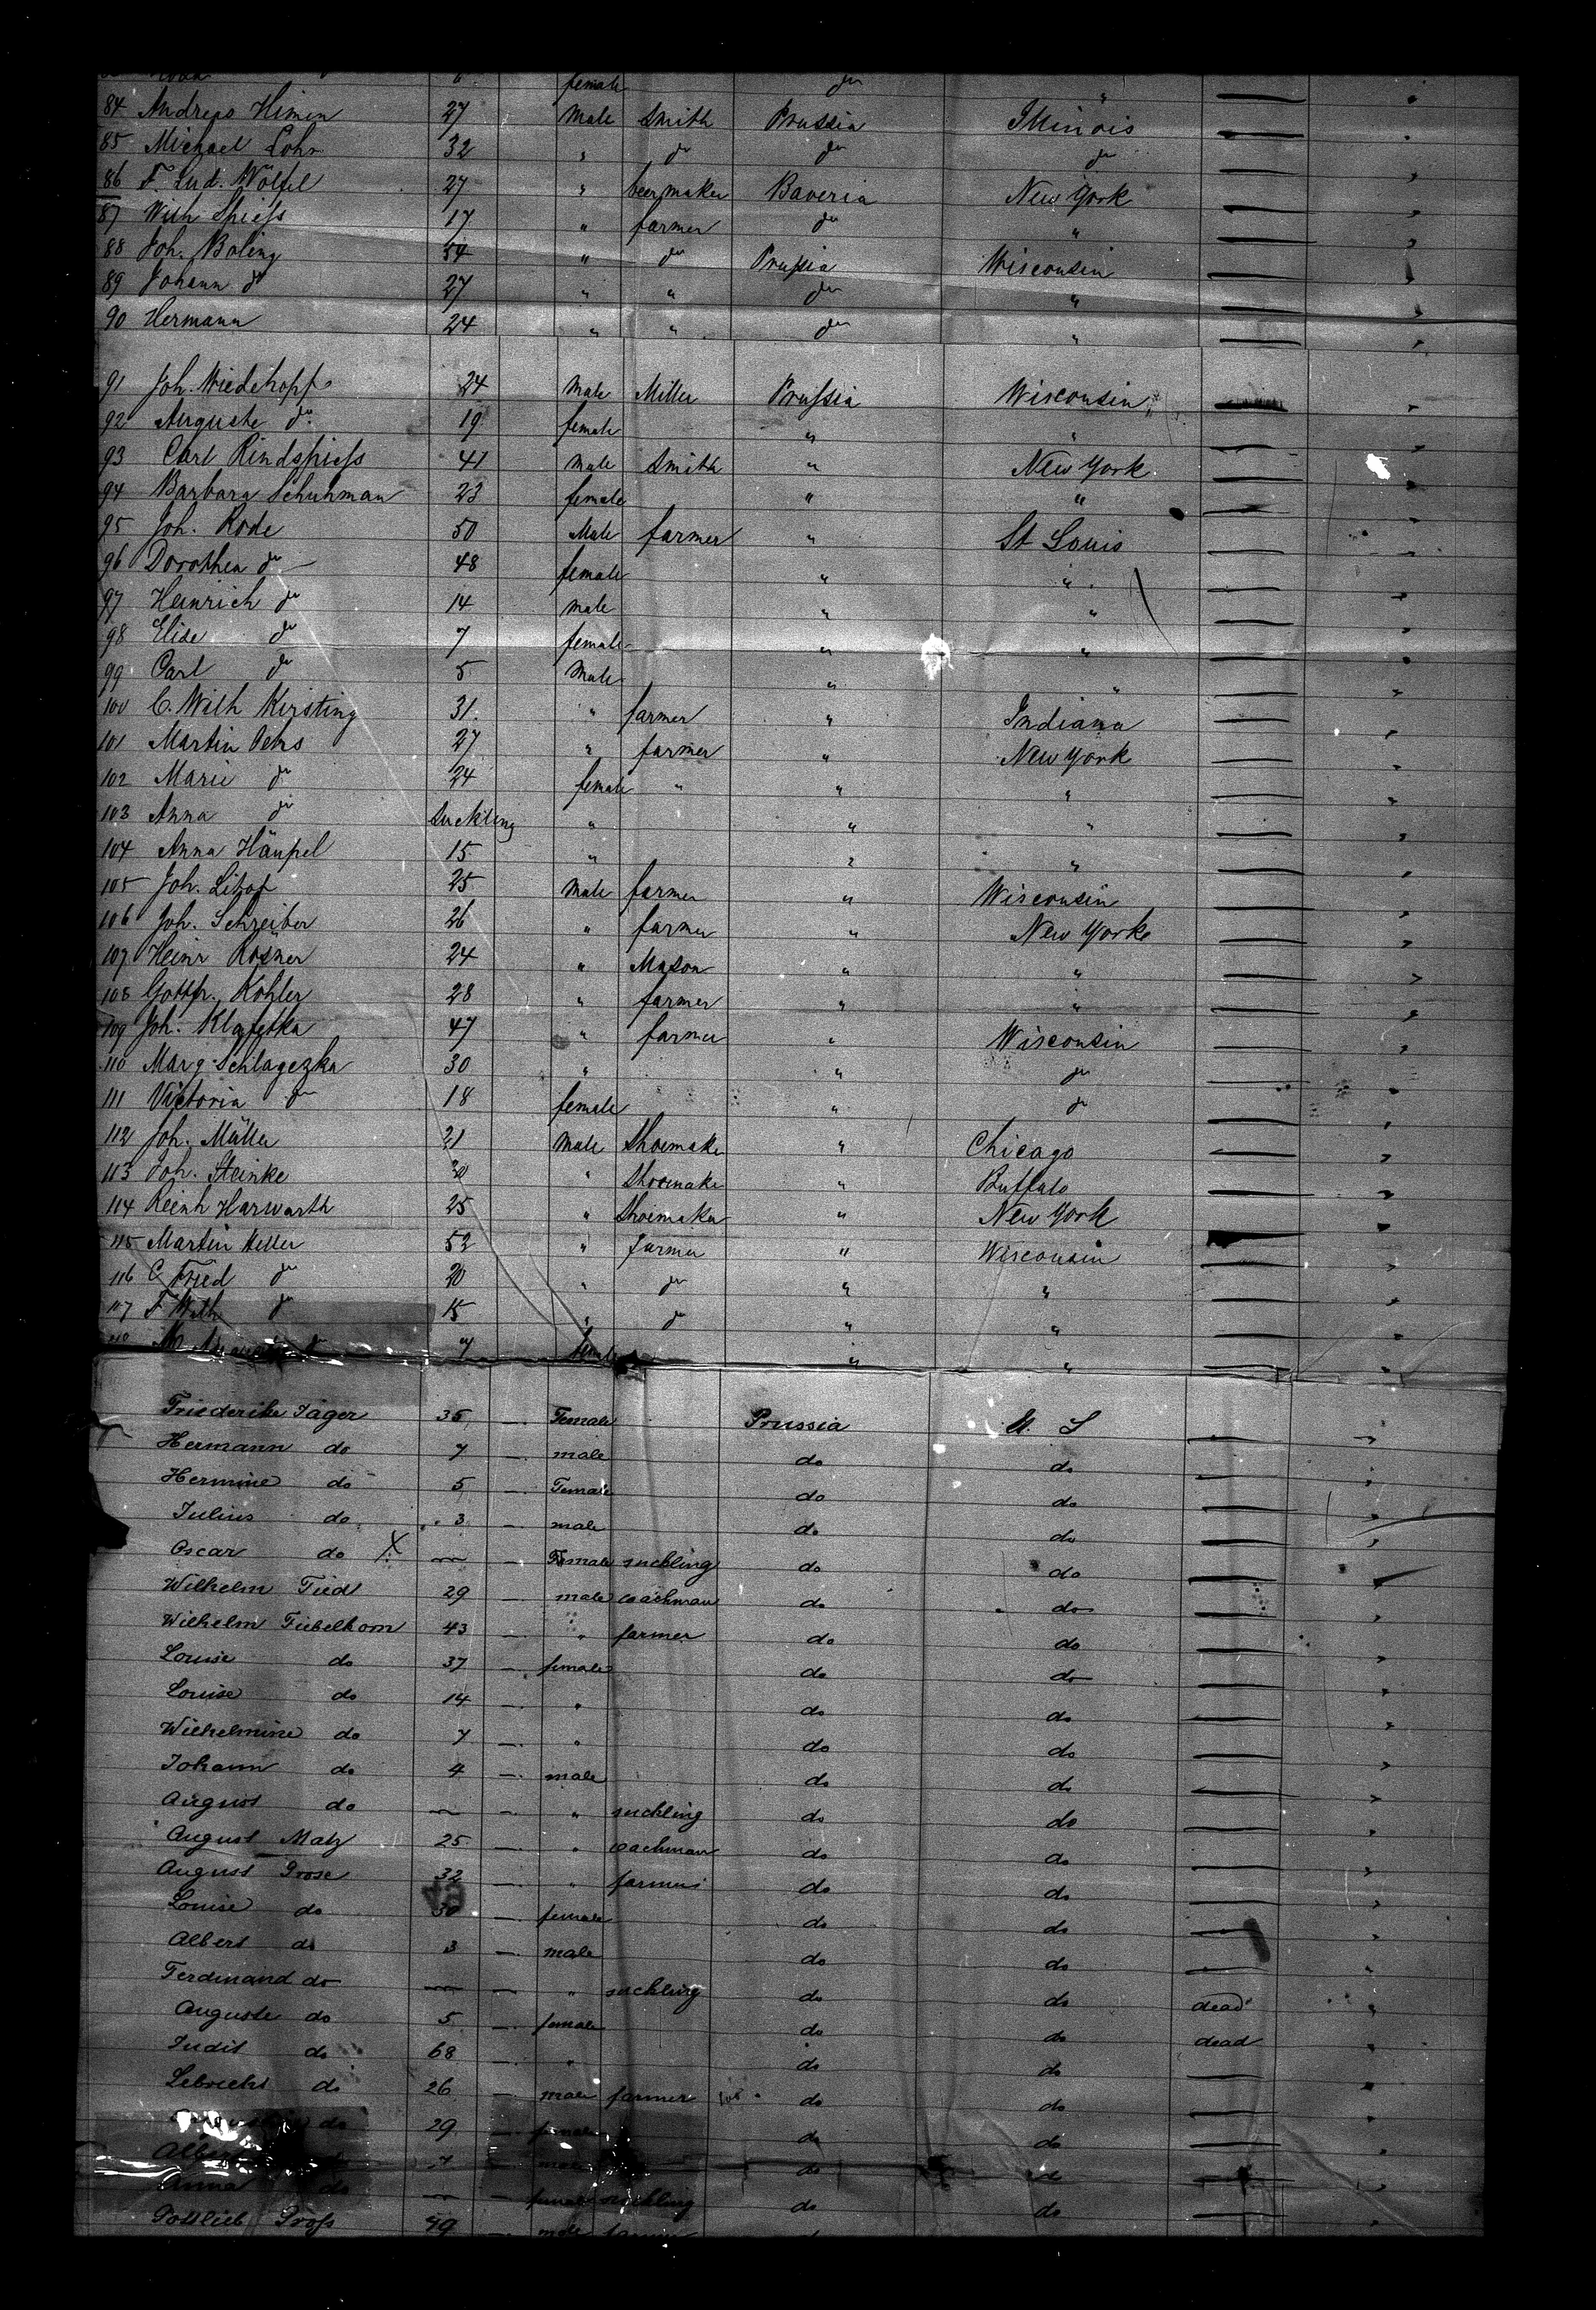 female do "
84 Andreas Himen 27 Male Smith Prussia Illinois
85 Michael Lohr 32 " do do do
86 F. Lud. Wölfel 27 " beermaker Baveria New York
87 Wilh Spiefs 17 " farmer do "
88 Joh. Boling 54 " do Prussia Wisconsin
89 Johann do 27 " " do "
90 Hermann 24 " " do "
91 Joh. Wiedehopf 24 Male Miller Prussia Wisconsin
92 Auguste do 19 female " "
93 Carl Rindspiefs 41 Male Smith " New York
94 Barbara Schuhman 23 female " "
95 Joh. Rode 50 Male farmer " St Louis
96 Dorothea do 48 female " "
97 Heinrich do 14 male " "
98 Elise do 7 female " "
99 Carl do 5 Male " "
100 C. Wilh Kirsting 31 " farmer " Indiana
101 Martin Oehs 27 " farmer " New York
102 Marie do 24 female " " "
103 Anna do Suckling " " "
104 Anna Häupel 15 " " "
105 Joh. Litzof 25 Male farmer " Wisconsin
106 Joh. Schreiber 26 " farmer " New York
107 Heinr Rosner 24 " Mason " "
108 Gottfr. Köhler 28 " farmer " "
109 Joh. Klafetka 47 " farmer " Wisconsin
110 Marg Schlagezka 30 " " do
111 Victoria do 18 female " do
112 Joh. Müller 21 Male Shoemake " Chicago
113 Joh. Steinke 30 " Shoemake " Buffalo
114 Reinh Harwarth 25 " Shoemaker " New York
115 Martin Heller 52 " farmer " Wisconsin
116 C Fried do 20 " do " "
117 F Wilh do 15 " do " "
118 7 female " "
Friederike Jäger 35 Female Prussia U. S
Hermann do 7 male do do
Hermine do 5 Female do do
Julius do 3 male do do
Oscar do X Female suckling do do
Wilhelm Tied 29 male coachman do do
Wilhelm Fiebelkorn 43 " farmer do do
Louise do 37 female do do
Louise do 14 " do do
Wilhelmine do 7 " do do
Johann do 4 male do do
August do " suckling do do
August Matz 25 " coachman do do
August Prose 32 " farmer do do
Louise do 30 female do do
Albert do 3 male do do
Ferdinand do " suckling do do dead
Auguste do 5 female do do dead
Judit do 68 " do do
Lebrecht do 26 male farmer do do
do 29 female do do
7 male do do
Anna do female suckling do do
Gottlieb Profs 49 male farmer